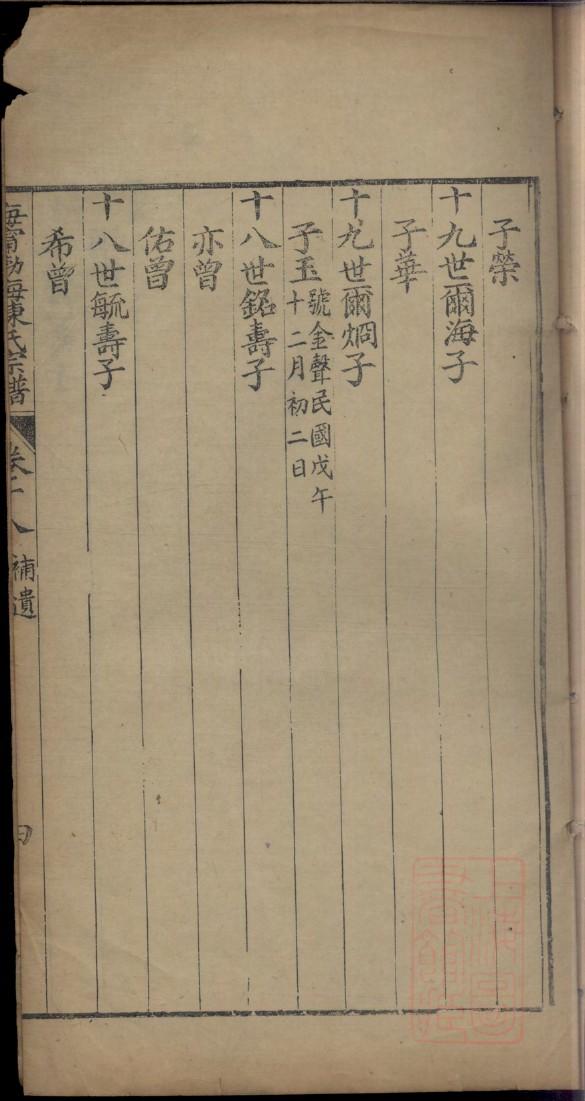 子榮
十九世爾海子
子華
十九世爾烱子
子玉 號金聲民國戊午
十二月初二日
十八世銘壽子
亦曾
佑曾
十八世毓壽子
希曾
海甯渤海陳氏宗譜 卷 八 補遺